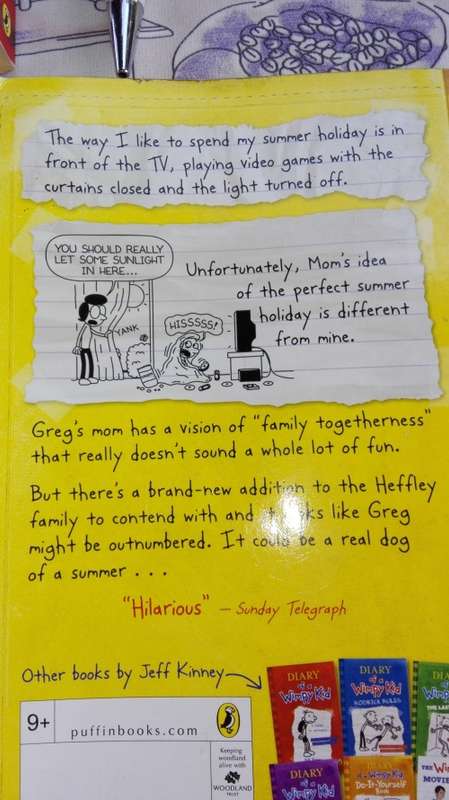 The way I like to spend my summer holiday is in
front of the TV, playing video games with the
curtains closed and the light turned off.
YOU SHOULD REALLY
LET SOME SUNLIGHT
IN HERE...
YANK
HISSSSS!
Unfortunately, Mom's idea
of the perfect summer
holiday is different
from mine.
Greg's mom has a vision of "family togetherness"
that really doesn't sound a whole lot of fun.
But there's a brand-new addition to the Heffley
family to contend with and it looks like Greg
might be outnumbered. It could be a real dog
of a summer . . .
"Hilarious" – Sunday Telegraph
Other books by Jeff Kinney
9+
puffinbooks.com
Keeping
woodland
alive with
WOODLAND
TRUST
DIARY
of a
Wimpy Kid
DIARY
of a
Wimpy Kid
RODRICK RULES
DIARY
of a
Wimpy Kid
THE LAS
DIARY
of a
Wimpy Kid
DIARY
of a Wimpy Kid
Do-It-Yourself
Book
THE Wi
MOVIE